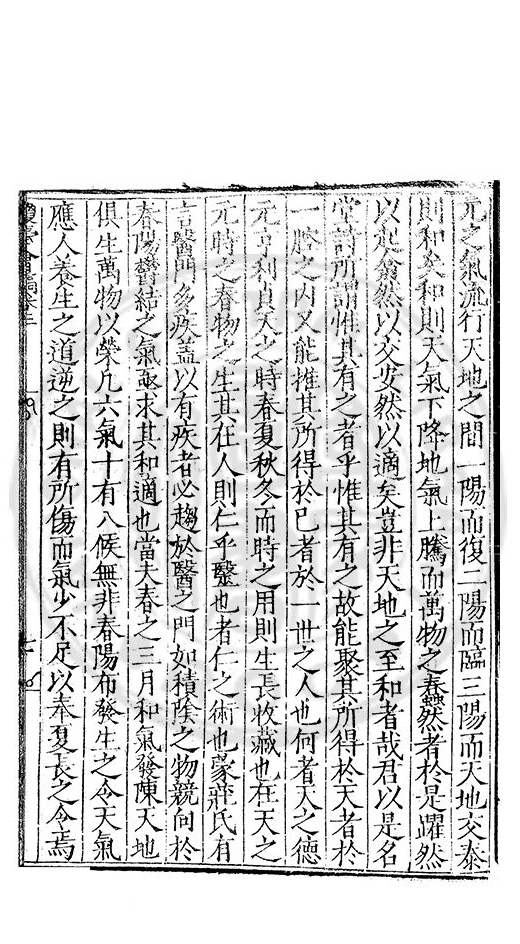 元之氣流行天地之間一陽而復二陽而臨三陽而天地交泰
則和矣和則天氣下降地氣上騰而萬物之蠢然者於是躍然
以起翕然以交安然以適矣豈非天地之至和者哉君以是名
堂詩所謂惟其有之者乎惟其有之故能聚其所得於天者於
一膝之内又能推其所得於已者於一世之人也何者天之德
元亨利貞天之時春夏秋冬而時之用則生長收藏也在天之
元時之春物之生其在人則仁乎醫也者仁之術也蒙莊氏有
言醫門多疾蓋以有疾者必趨於醫之門如積陰之物競向於
春陽鬱結之氣亟求其和適也當夫春之三月和氣發陳天地
俱生萬物以榮凡六氣十有八候無非春陽布發生之令天氣
應人養生之道逆之則有所傷而氣少不足以奉夏長之令焉